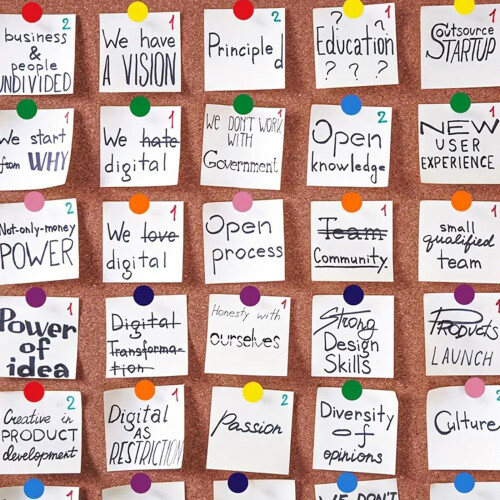 2
business
&
people
UNDIVIDED
1
We have
A VISION
2
Principled
1
Education
? ? ? ? ?
1
Outsource
STARTUP
1
We start
from WHY
1
We hate
digital
1
WE DON'T WORK
WITH
Government
2
Open
knowledge
1
NEW
USER
EXPERIENCE
2
Not-only-money
POWER
1
We love
digital
Open
process
1
Team
Community
1
small
qualified
team
1
Power
of
idea
Digital
Transforma-
tion
1
Honesty with
ourselves
Strong
Design
Skills
1
Products
LAUNCH
2
Creative in
PRODUCT
development
1
Digital
AS
RESTRICTION
2
Passion
Diversity
of
opinions
2
Culture
1
2
WE DON'T